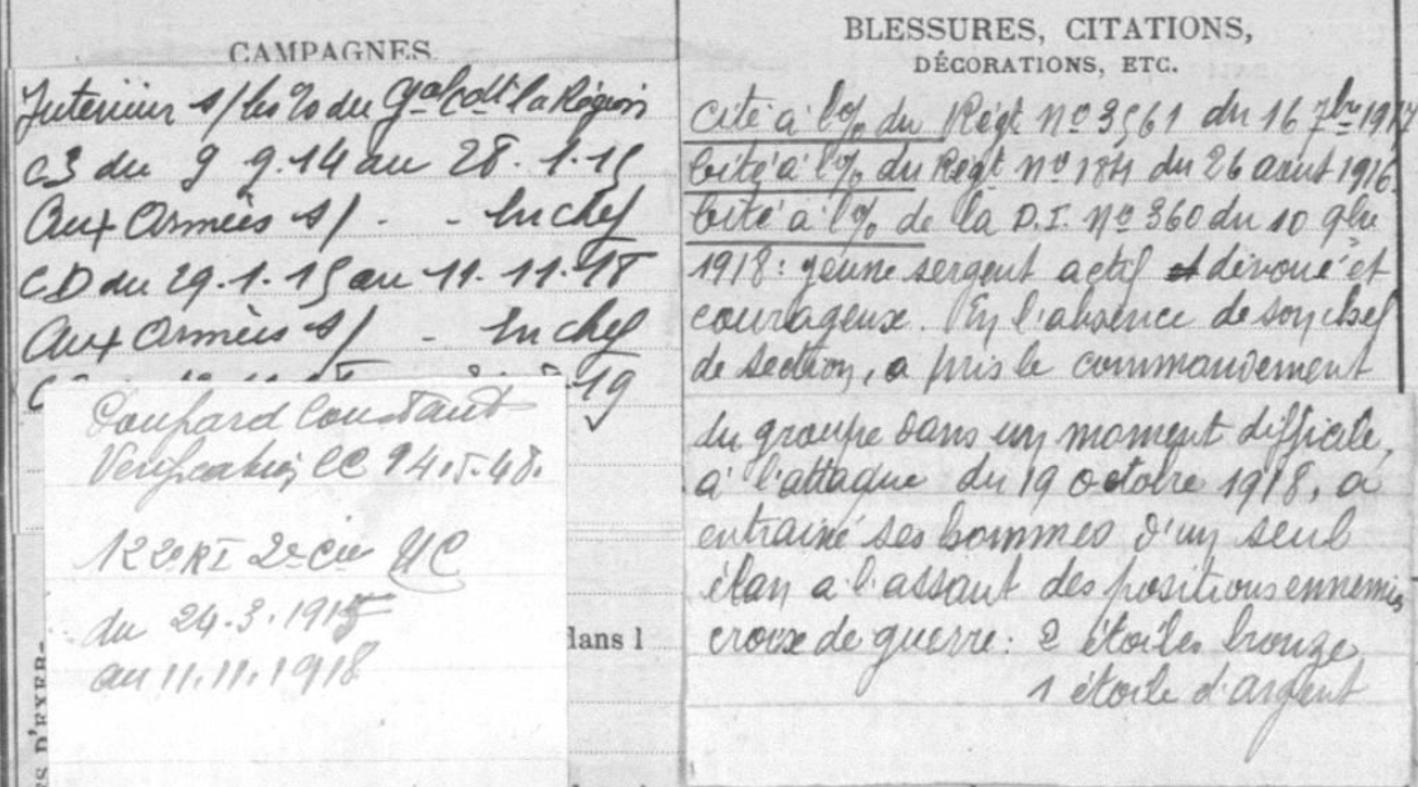 CAMPAGNES.
Intérieur s/ les % du Gal Cdt la Région
CS du 9 9.14 au 28.1.15
Aux Armées s/ - - en chef
CD du 29.1.15 au 11.11.18
Aux Armées s/ - en chef
19
Constant
Vérification CC 94.5.48.
122e RI 2e Cie UC
du 24.3.1915
au 11.11.1918
dans l
BLESSURES, CITATIONS,
DÉCORATIONS, ETC.
Cité à l'% du Régt No 3561 du 16 7bre 1917
Cité à l'% du Régt No 184 du 26 août 1916
Cité à l'% de la D.I. No 360 du 10 9bre
1918 : jeune sergent actif dévoué et
courageux. En l'absence de son chef
de section, a pris le commandement
du groupe dans un moment difficile,
à l'attaque du 19 octobre 1918, a
entrainé ses hommes d'un seul
élan à l'assaut des positions ennemies
croix de guerre : 2 étoiles bronze
1 étoile d'argent